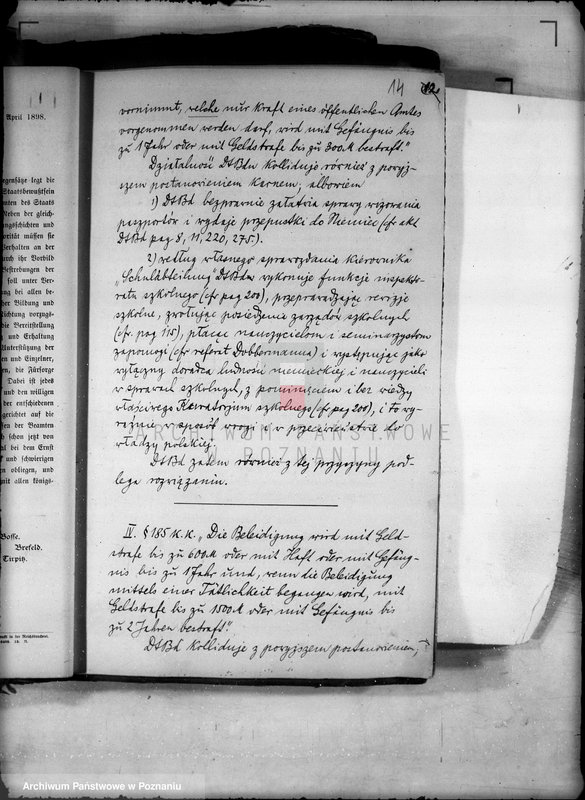 14 12
April 1898.
egensätze legt die
Staatsbewußtsein
nten des Staats
Neben der gleich-
ngsschichten und
orität müssen sie
Verhalten an der
urch ihr Vorbild
Bestrebungen der
soll unter Ver-
ng bei allen be-
her Bildung und
Richtung vorzugs-
die Bereitstellung
und Erhaltung
Unterstützung der
en und Einzelner,
en, die Fürsorge
Dabei ist jedes
und den willigen
der entschiedenen
gerichtet auf die
ffen der Beamten
h schon jetzt von
al bei dem Ernst
k und schwierigen
en obliegen, und
it allen königs-
Bosse.
Brefeld.
Tirpitz.
vornimmt, welche nur kraft eines öffentlichen Amtes
vorgenommen werden darf, wird mit Gefängnis bis
zu 1 Jahr oder mit Geldstrafe bis zu 300 M bestraft."
Działalność DtBdu koliduje również z powyż-
szem postanowieniem karnem, albowiem
1) DtBd bezprawnie załatwia sprawy wizowania
paszportów i wydaje przepustki do Niemiec (cfr akt
DtBd pag 8, 11, 220, 275).
2) według własnego sprawozdania kierownika
"Schulabteilung" DtBdu wykonuje funkcje inspekto-
ratu szkolnego (cfr pag 200), przeprowadzając rewizje
szkolne, zwołując posiedzenia zarządów szkolnych
(cfr. pag 115), płacąc nauczycielom i seminarzystom
zapomogi (cfr referat Dobbermanna) i występując jako
wyłączny doradca ludności niemieckiej i nauczycieli
w sprawach szkolnych, z pominięciem i bez wiedzy
właściwego Kuratorjum szkolnego (cfr pag 200), i to wy-
raźnie w sposób wrogi i w przeciwieństwie do
władzy polskiej.
DtBd zatem również z tej przyczyny pod-
lega rozwiązaniu.
IV. § 185 K.K. "Die Beleidigung wird mit Geld-
strafe bis zu 600 M oder mit Haft oder mit Gefäng-
nis bis zu 1 Jahr und, wenn die Beleidigung
mittels einer Tätlichkeit begangen wird, mit
Geldstrafe bis zu 1500 M oder mit Gefängnis bis
zu 2 Jahren bestraft."
DtBd koliduje z powyższem postanowieniem,
ARCHIWUM PAŃSTWOWE
W POZNANIU
Archiwum Państwowe w Poznaniu